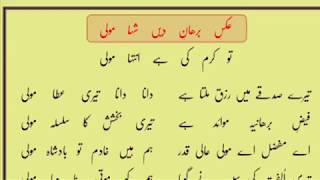 عکس برھان دیں شہا مولی
تو کرم کی ہے انتہا مولی
تیرے صدقے میں رزق ملتا ہے دانا دانا تیری عطا مولی
فیض برھانیہ موائد ہے تیری بخشش کا سلسلہ مولی
اے مفضل اے مولی عالی قدر ہم ہیں خادم تو بادشاہ مولی